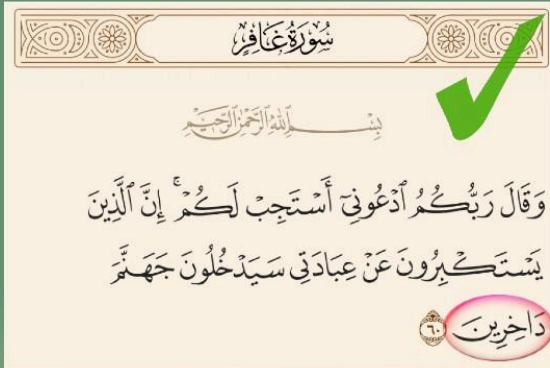 سُورَةُ غَافِرٍ
بِسْمِ اللَّهِ الرَّحْمَٰنِ الرَّحِيمِ
وَقَالَ رَبُّكُمُ ٱدْعُونِىٓ أَسْتَجِبْ لَكُمْ ۚ إِنَّ ٱلَّذِينَ
يَسْتَكْبِرُونَ عَنْ عِبَادَتِى سَيَدْخُلُونَ جَهَنَّمَ
دَاخِرِينَ ٦٠